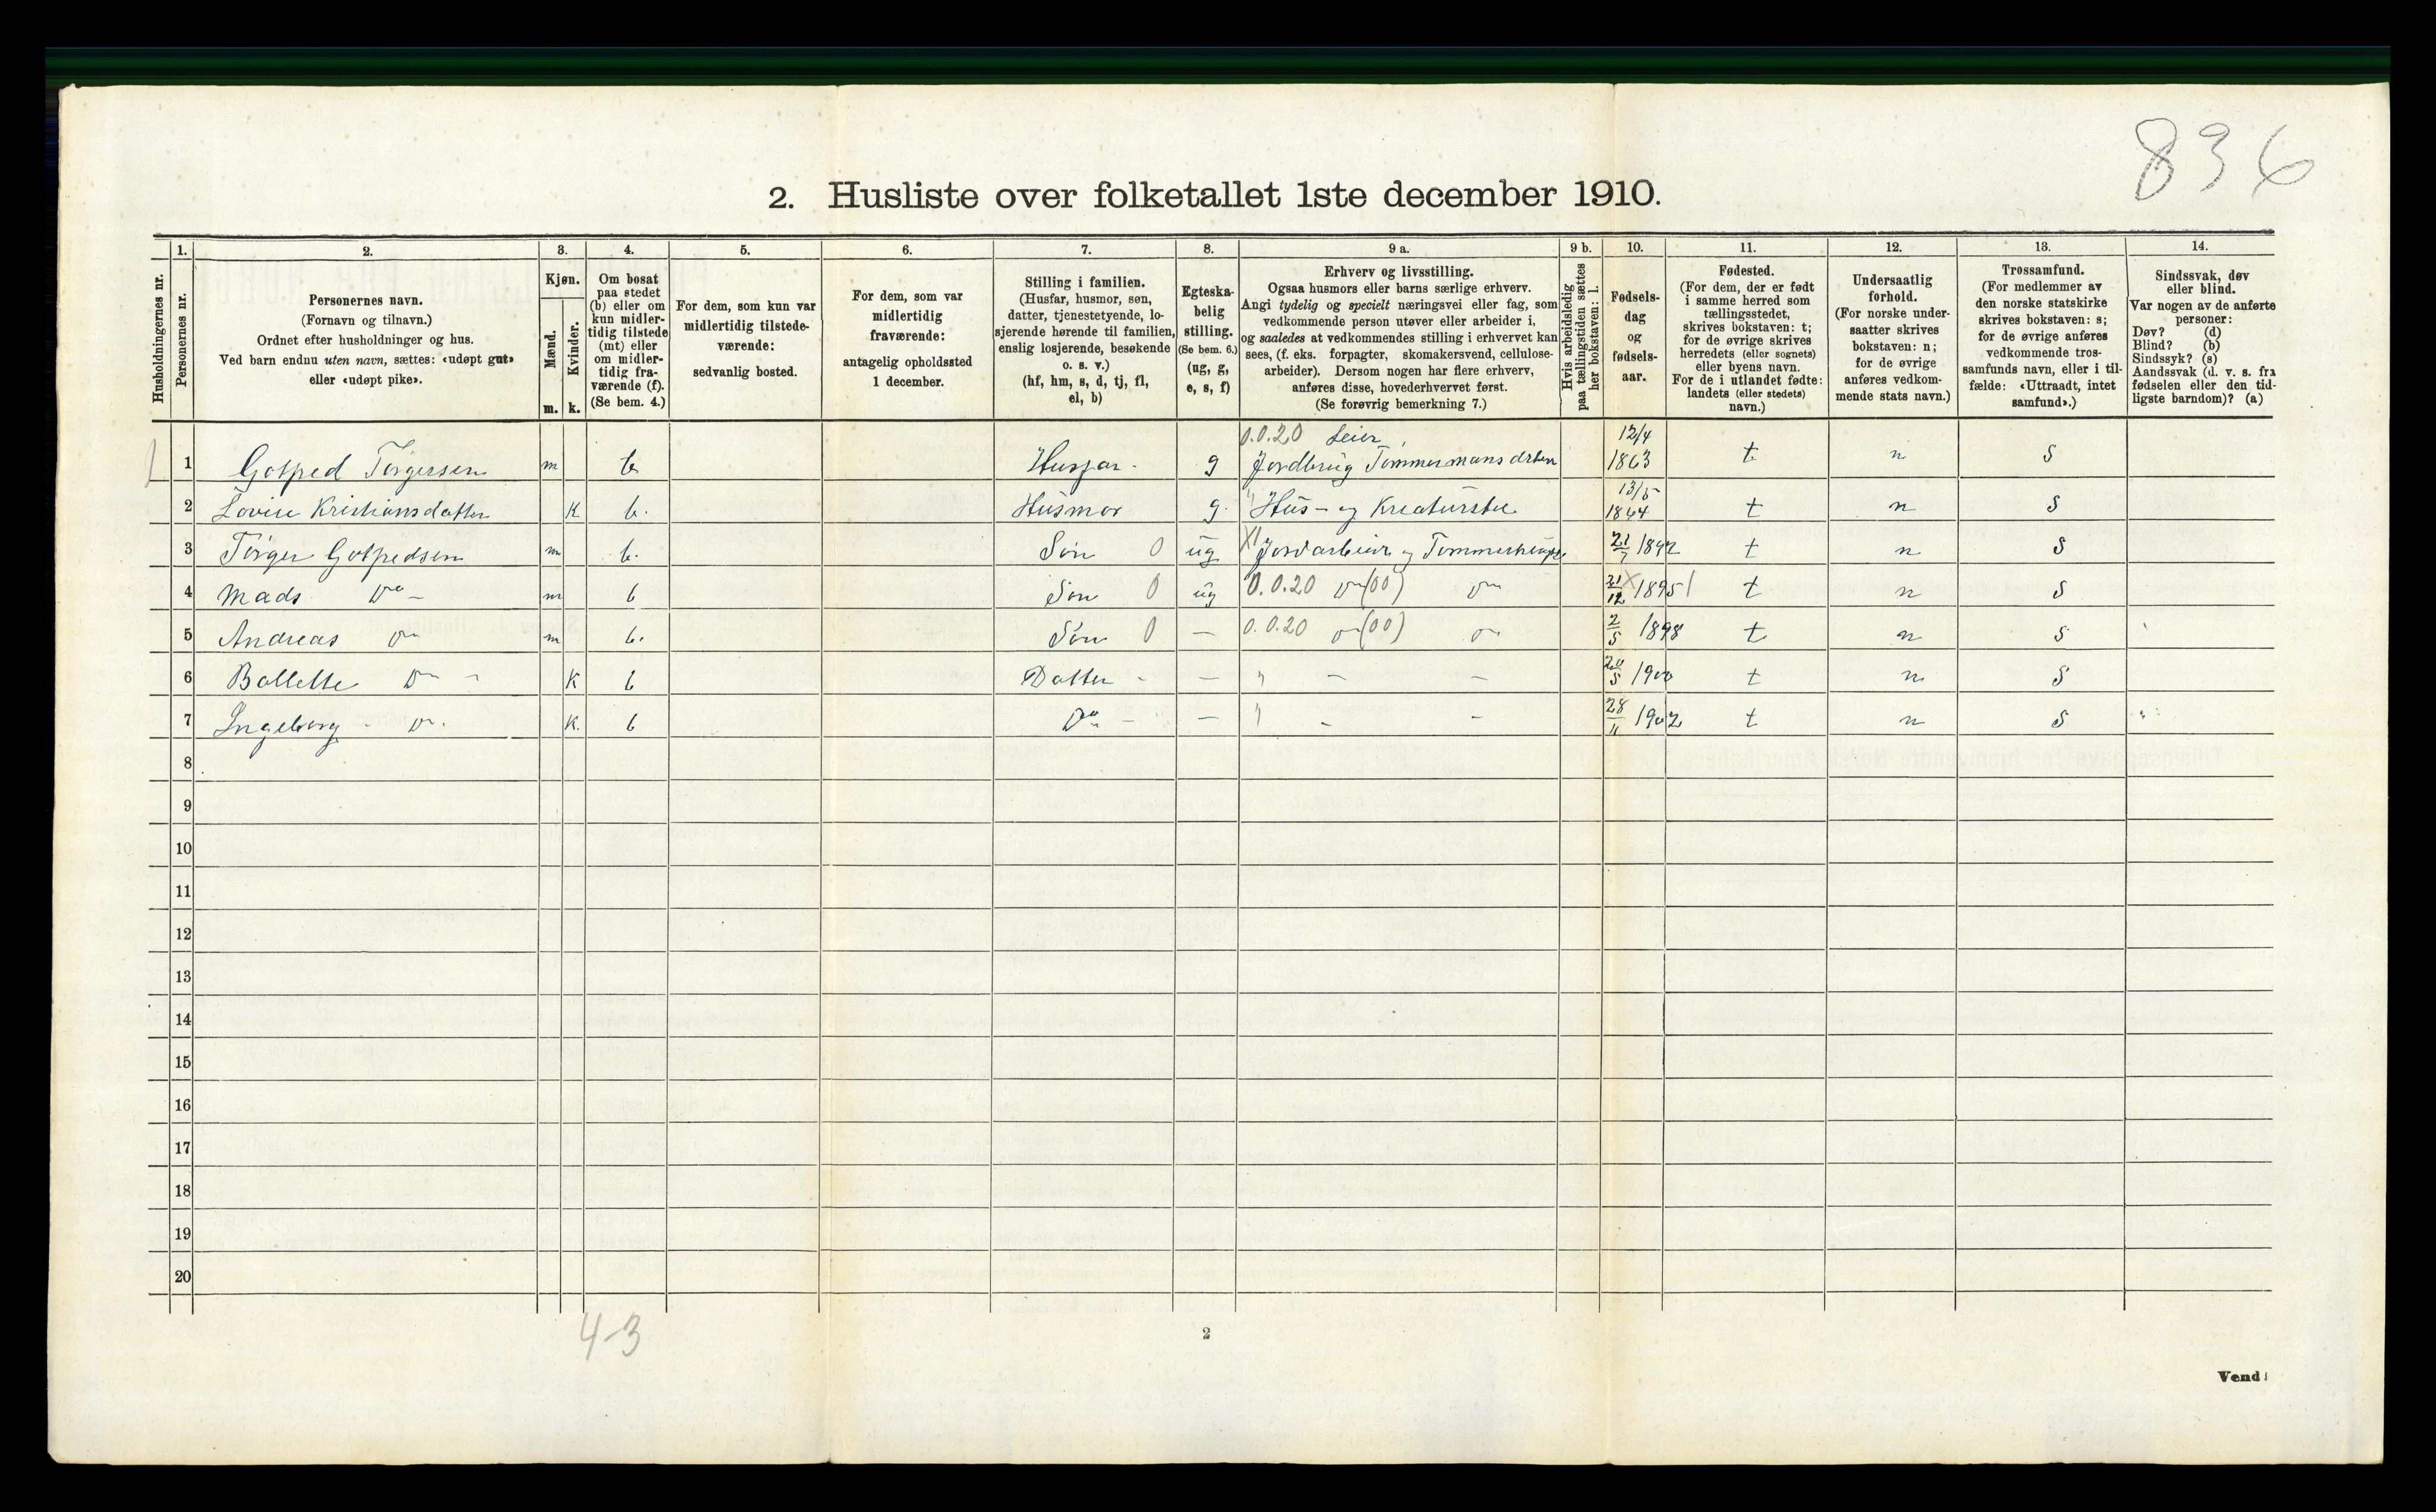 836
2. Husliste over folketallet 1ste december 1910.
Husholdningernes nr.
1.
Personernes nr.
2.
Personernes navn.
(Fornavn og tilnavn.)
Ordnet efter husholdninger og hus.
Ved barn endnu uten navn, sættes: «udøpt gut»
eller «udøpt pike».
3.
Kjøn.
Mænd.
m.
Kvinder.
k.
4.
Om bosat
paa stedet
(b) eller om
kun midler-
tidig tilstede
(mt) eller
om midler-
tidig fra-
værende (f).
(Se bem. 4.)
5.
For dem, som kun var
midlertidig tilstede-
værende:
sedvanlig bosted.
6.
For dem, som var
midlertidig
fraværende:
antagelig opholdssted
1 december.
7.
Stilling i familien.
(Husfar, husmor, søn,
datter, tjenestetyende, lo-
sjerende hørende til familien,
enslig losjerende, besøkende
o. s. v.)
(hf, hm, s, d, tj, fl,
el, b)
8.
Egteska-
belig
stilling.
(Se bem. 6.)
(ug, g,
e, s, f)
9 a.
Erhverv og livsstilling.
Ogsaa husmors eller barns særlige erhverv.
Angi tydelig og specielt næringsvei eller fag, som
vedkommende person utøver eller arbeider i,
og saaledes at vedkommendes stilling i erhvervet kan
sees, (f. eks. forpagter, skomakersvend, cellulose-
arbeider). Dersom nogen har flere erhverv,
anføres disse, hovederhvervet først.
(Se forøvrig bemerkning 7.)
9 b.
Hvis arbeidsledig
paa tællingstiden sættes
her bokstaven: l.
10.
Fødsels-
dag
og
fødsels-
aar.
11.
Fødested.
(For dem, der er født
i samme herred som
tællingsstedet,
skrives bokstaven: t;
for de øvrige skrives
herredets (eller sognets)
eller byens navn.
For de i utlandet fødte:
landets (eller stedets)
navn.)
12.
Undersaatlig
forhold.
(For norske under-
saatter skrives
bokstaven: n;
for de øvrige
anføres vedkom-
mende stats navn.)
13.
Trossamfund.
(For medlemmer av
den norske statskirke
skrives bokstaven: s;
for de øvrige anføres
vedkommende tros-
samfunds navn, eller i til-
fælde: «Uttraadt, intet
samfund».)
14.
Sindssvak, døv
eller blind.
Var nogen av de anførte
personer:
Døv? (d)
Blind? (b)
Sindssyk? (s)
Aandssvak (d. v. s. fra
fødselen eller den tid-
ligste barndom)? (a)
0.0.20 Leier 12/4
1 1 Gotfred Törgersen m b. Husfar. g Jordbrug Tömmermans 1863 t n S
13/5
2 Lovise Kristiansdatter K b. Husmor g. Hus- og Kreaturstel 1864 t n S
3 Törger Gotfredsen m b. Sön 0 ug Jordarbeide og 21/7 t n S
4 Mads Do - m b Sön 0 ug 0.0.20 do (00) do 31/12 1895 t n S
5 Andreas do m b. Sön 0 - 0.0.20 do (00) do 2/5 1898 t n S
6 Bollette Do K b Datter - - " - - 20/5 1900 t n S
7 Ingeborg - do. K. b Do - - " - - 28/11 1902 t n S
8
9
10
11
12
13
14
15
16
17
18
19
20
4-3
2
Vend!